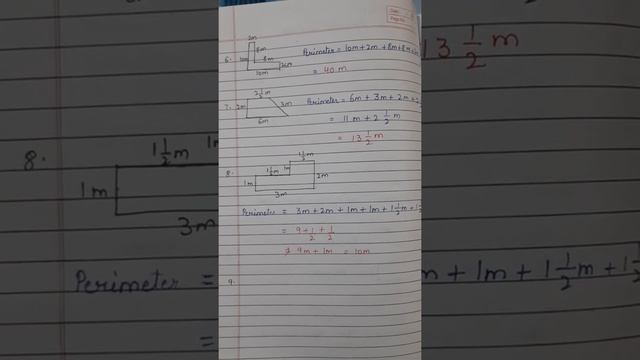 2m
6. 10m 8m 8m 2m 10m
Perimeter = 10m + 2m + 8m + 8m
= 40 m
7. 2 1/2 m 2m 3m 6m
Perimeter = 6m + 3m + 2m +
= 11 m + 2 1/2 m
= 13 1/2 m
8. 1 1/2 m 1m 1 1/2 m 1m 2m 3m
Perimeter = 3m + 2m + 1m + 1m + 1 1/2 m +
= 9 + 1/2 + 1/2
9m + 1m = 10m
9.
13 1/2 m
8. 1 1/2 m
1m
3m
Perimeter =
=
m + 1m + 1 1/2 m +